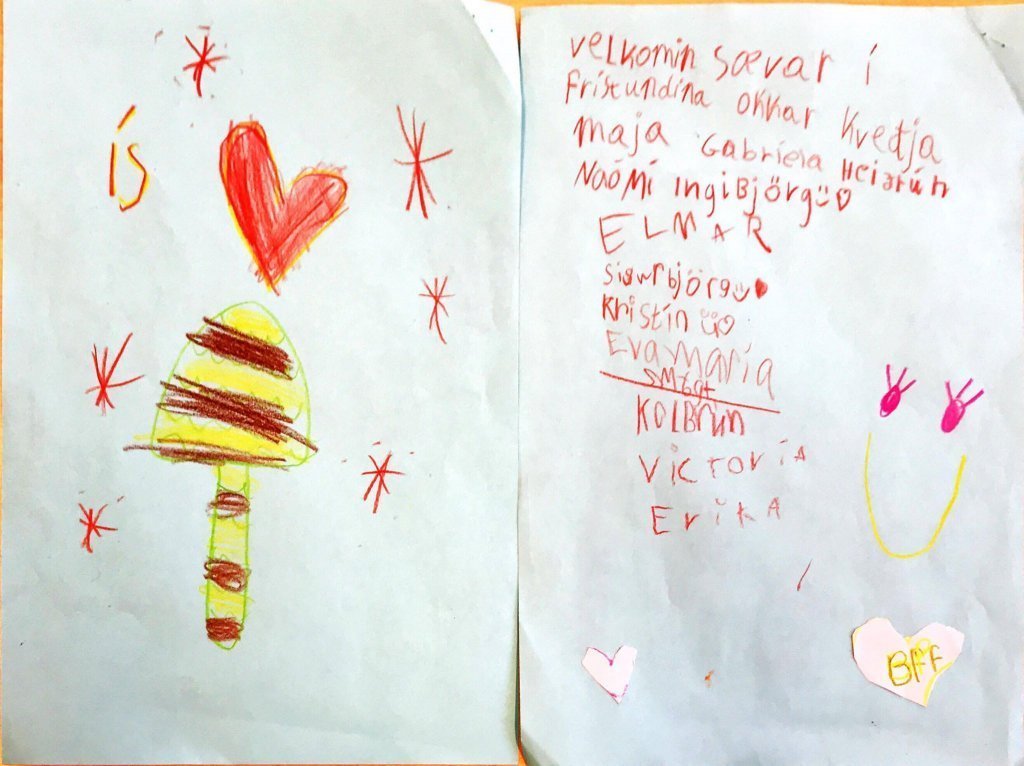 ís
velkomin sævar í
Frístundina okkar Kveðja
maja Gabriela Heiðrún
Naómí IngiBjörg
ELMAR
Sigurbjörg
Kristín
Eva María
KOLBRÚN
VICTORÍA
ErikA
BFF